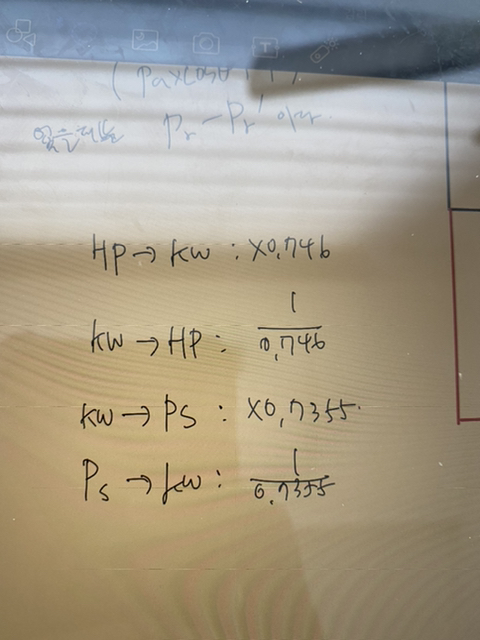 T
(Pa x cosθ
Pr - Pr' 이다.
HP → kW : ×0,746
kW → HP : 1/0,746
kW → PS : ×0,7355
Ps → kW : 1/0,7355